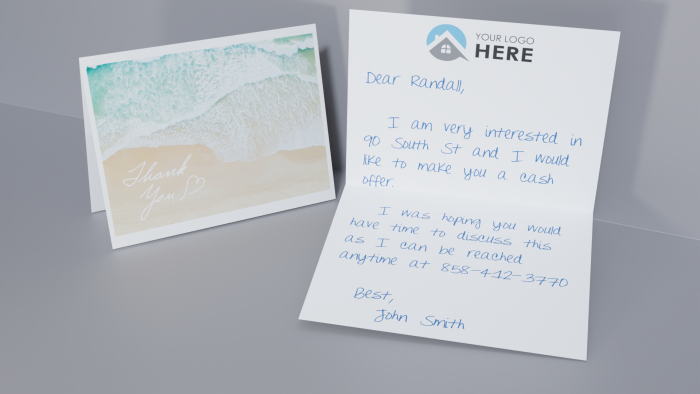 Thank
You
YOUR LOGO
HERE
Dear Randall,
I am very interested in
90 South St and I would
like to make you a cash
offer.
I was hoping you would
have time to discuss this
as I can be reached
anytime at 858-412-3770
Best,
John Smith